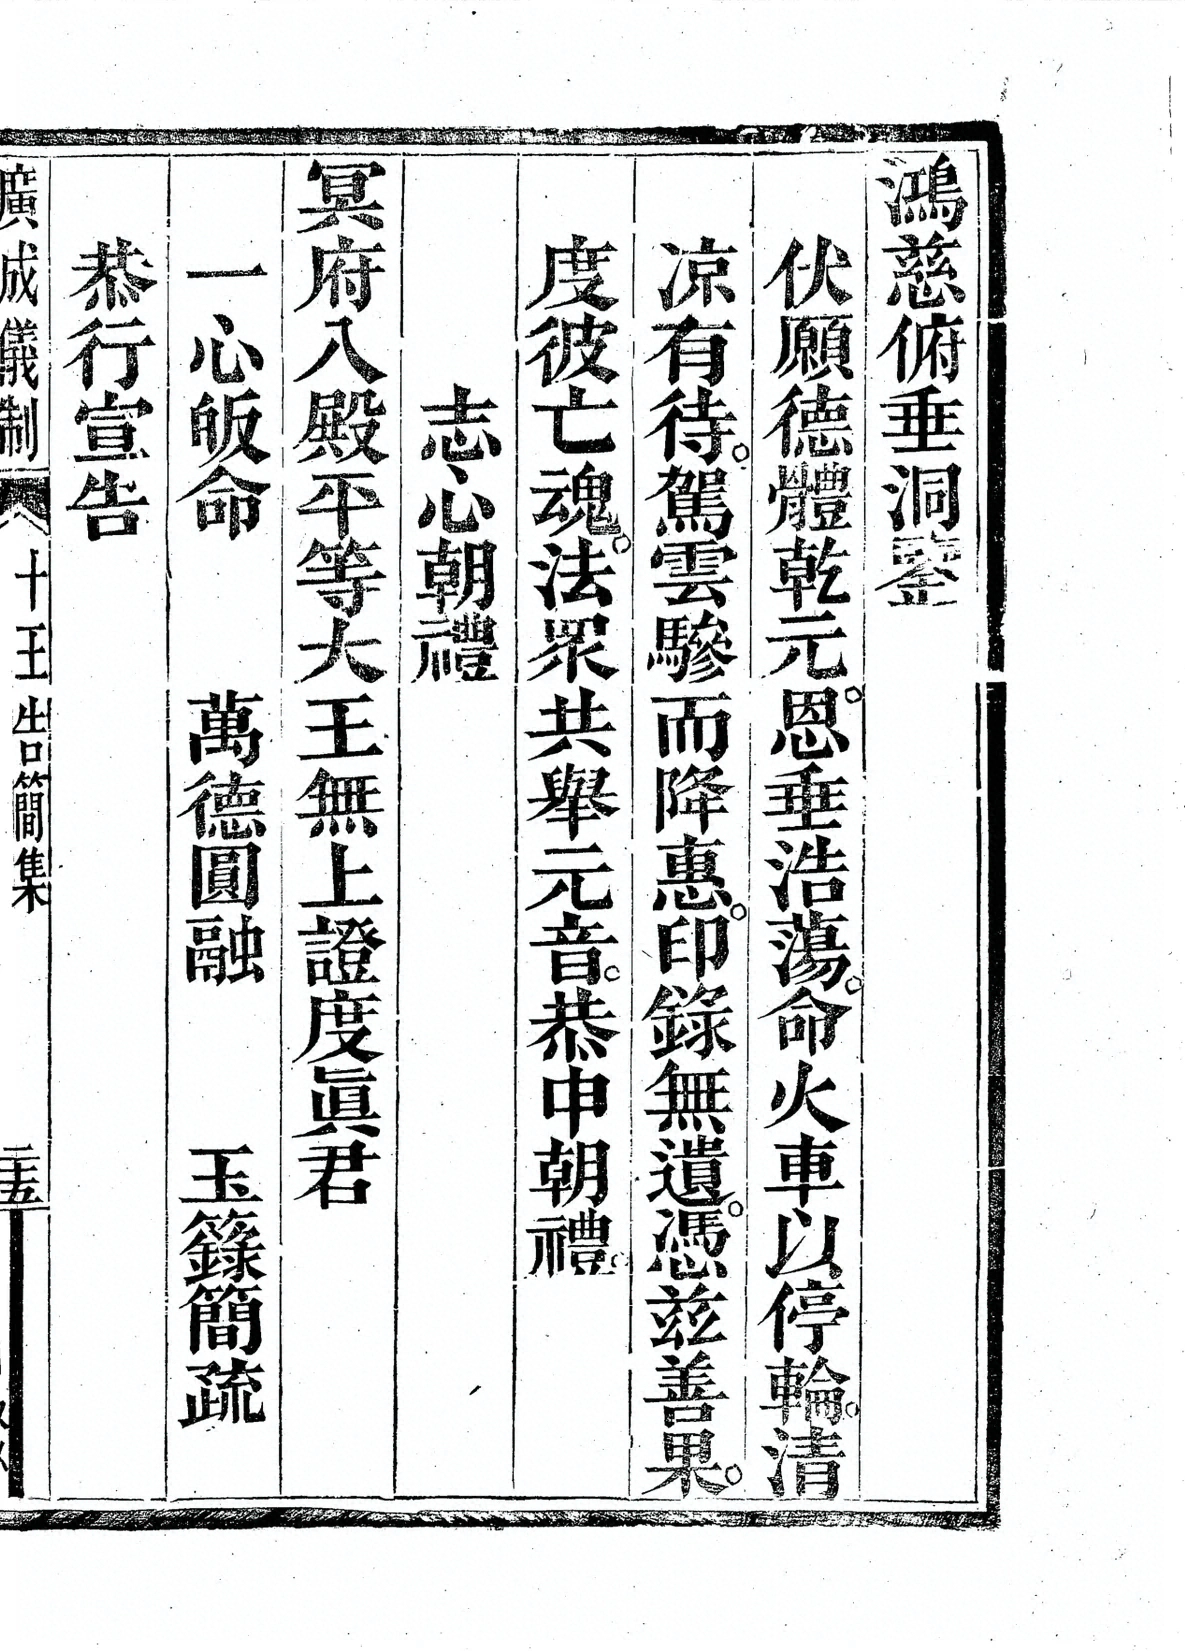 鴻慈俯垂洞鑒
伏願德體乾元。恩垂浩蕩。命火車以停輪。清
凉有待。駕雲驂而降惠。印錄無遺。憑兹善果。
度彼亡魂。法眾共舉元音。恭申朝禮。
志心朝禮
冥府八殿平等大王無上證度眞君
一心皈命　萬德圓融　玉籙簡疏
恭行宣告
廣成儀制　十王告簡集　二十五